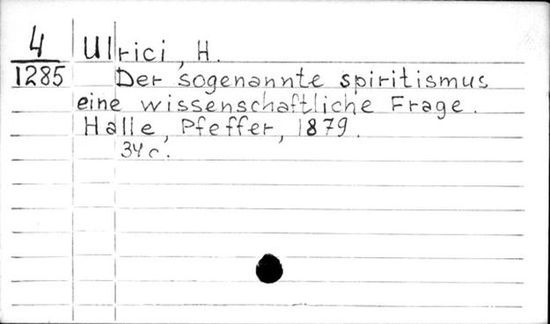 4
1285
Ulrici, H.
Der sogenannte spiritismus
eine wissenschaftliche Frage.
Halle, Pfeffer, 1879.
34 c.